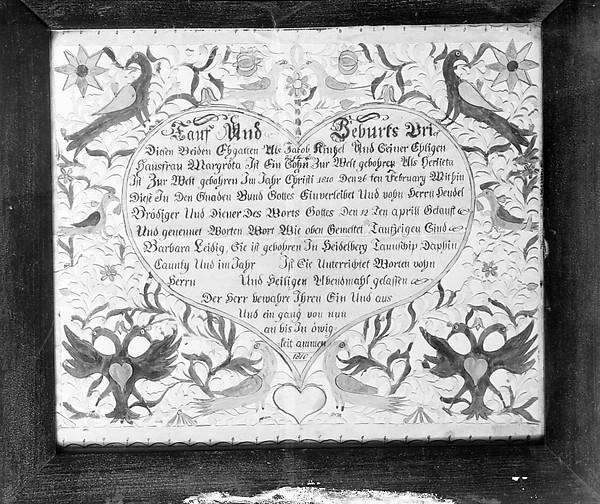 Tauf Und Geburts Bri
Diesen Beiden Ehgatten Als Jacob Kintzel Und Seiner Ehligen
Hausfrau Margröta Ist Ein Sohn Zur Welt gebohren Als
Ist Zur Welt gebohren Im Jahr Christi 1810 Den 26 ten February Mithin
Diese In Den Gnaden Bund Gottes Einverleibet Und vohn Herrn Hendel
Brödiger Und Diener Des Worts Gottes Den 12 Ten aprill Getauft
Und genennet Worten Wort Wie oben Gemeltet Taufzeigen Sind
Barbara Leidig, Sie ist gebohren In Heidelberg Taunschip Daphin
Caunty Und im Jahr Ist Sie Unterrichtet Worten vohn
Herrn Und Heiligen Abendmahl gelassen
Der Herr bewahre Ihren Ein Und aus
Und ein gang von nun
an bis In öwig
keit ammen
1810